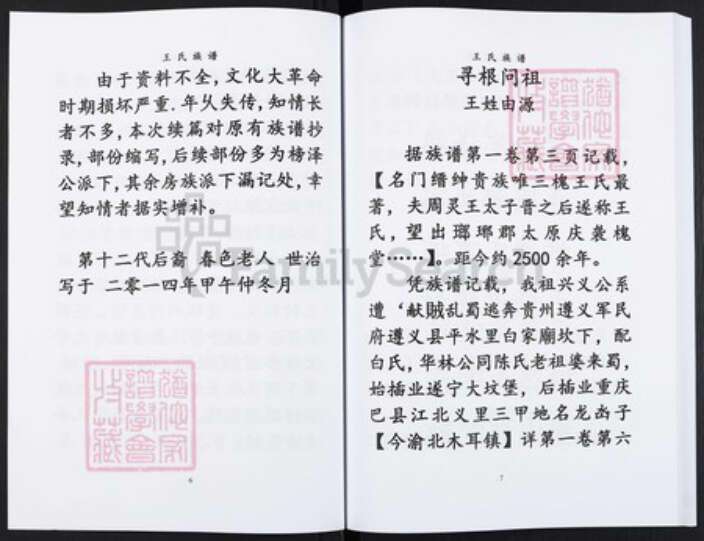 王氏族谱
由于资料不全,文化大革命
时期损坏严重.年乆失传,知情长
者不多,本次续篇对原有族谱抄
录,部份缩写,后续部份多为榜泽
公派下,其余房族派下漏记处,幸
望知情者据实增补。
第十二代后裔 春色老人 世治
写于 二零一四年甲午仲冬月
6
王氏族谱
寻根问祖
王姓由源
据族谱第一卷第三页记载,
【名门缙绅贵族唯三槐王氏最
著,夫周灵王太子晋之后遂称王
氏,望出瑯琊郡太原庆袭槐
堂……】。距今约2500余年。
凭族谱记载,我祖兴义公系
遭‘献贼乱蜀逃奔贵州遵义军民
府遵义县平水里白家廟坎下,配
白氏,华林公同陈氏老祖婆来蜀,
始插业遂宁大坟堡,后插业重庆
巴县江北义里三甲地名龙凼子
【今渝北木耳镇】详第一卷第六
7
FamilySearch